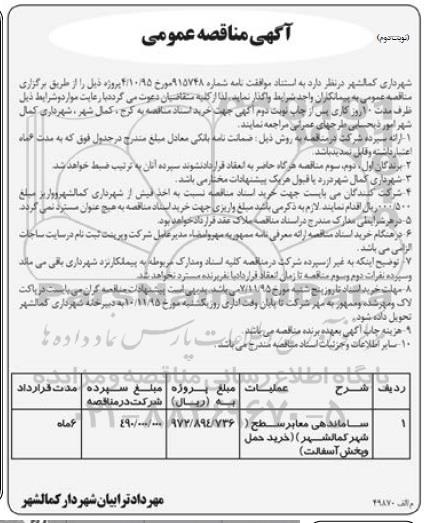 آگهی مناقصه عمومی
(نوبت دوم)
شهرداری کمالشهر درنظر دارد به استناد موافقت نامه شماره ۹۱۵۷۴۸مورخ ۴/۱۰/۹۵پروژه ذیل را از طریق برگزاری
مناقصه عمومی به پیمانکاران واجد شرایط واگذار نماید. لذا از کلیه متقاضیان دعوت می گردد با رعایت موارد وشرایط ذیل
ظرف مدت ۱۰روز کاری پس از چاپ نوبت دوم آگهی جهت خرید اسناد مناقصه به کرج ، کمال شهر ، شهرداری کمال
شهر امور ذیحسابی طرحهای عمرانی مراجعه نمایند.
۱-ارائه سپرده شرکت در مناقصه به روش ذیل : ضمانت نامه بانکی معادل مبلغ مندرج در جدول فوق که به مدت ۶ماه
اعتبار داشته وقابل تمدید باشد.
۲-برندگان اول، دوم، سوم مناقصه هرگاه حاضر به انعقاد قرارداد نشوند سپرده آنان به ترتیب ضبط خواهد شد.
۳-شهرداری کمال شهر در رد یا قبول هر یک پیشنهادات مختار می باشد.
۴-شرکت کنندگان می بایست جهت خرید اسناد مناقصه نسبت به اخذ فیش از شهرداری کمالشهر وواریز مبلغ
۵۰۰/۰۰۰ریال اقدام نمایند. لازم به ذکر می باشد مبلغ واریزی جهت خرید اسناد مناقصه به هیچ عنوان مسترد نمی گردد.
۵-در هر شرایطی مدارک مندرج در اسناد مناقصه ملاک عقد قرارداد خواهد بود.
۶-در هنگام خرید اسناد مناقصه ارائه معرفی نامه ممهور به مهر وامضاء مدیرعامل شرکت وپرینت ثبت نام در سایت ساجات
الزامی می باشد.
۷-توضیح اینکه به غیر از سپرده شرکت در مناقصه کلیه اسناد ومدارک مربوطه به پیمانکار نزد شهرداری باقی می ماند
وسپرده نفرات دوم وسوم مناقصه تا زمان انعقاد قرارداد با نفر برنده مسترد نخواهد شد.
۸-مهلت خرید اسناد تا روز پنج شنبه مورخ ۷/۱۱/۹۵می باشد. بدیهی است پیشنهادات مناقصه گران می بایست در پاکت
لاک ومهر شده وممهور به مهر شرکت تا پایان وقت اداری روز یکشنبه مورخ ۱۰/۱۱/۹۵به دبیرخانه شهرداری کمالشهر
تحویل داده شود.
۹-هزینه چاپ آگهی بعهده برنده مناقصه می باشد.
۱۰-سایر اطلاعات وجزئیات اسناد مناقصه مندرج می باشد.
ردیف شرح عملیات مبلغ پروژه به (ریال) مبلغ سپرده شرکت در مناقصه مدت قرارداد
۱ ساماندهی معابر سطح شهر کمالشهر (خرید حمل وپخش آسفالت) ۹۷۲/۸۹۴/۷۳۶ ۴۹۰/۰۰۰/۰۰۰ ۶ماه
مهرداد ترابیان شهردار کمالشهر
م/الف ۴۹۸۷۰